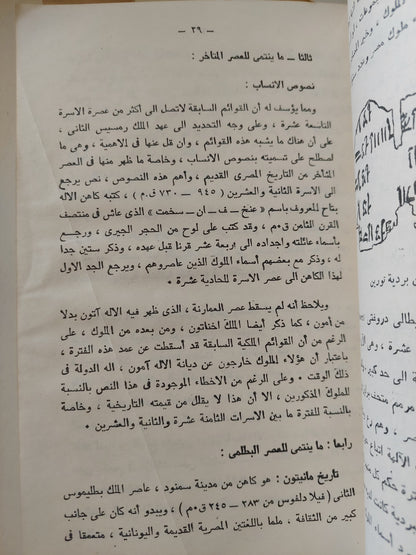 — ٢٩ —
ثالثا — ما ينتمى للعصر المتأخر :
نصوص الانساب :
ومما يؤسف له أن القوائم السابقة لاتصل الى أكثر من عصرة الاسرة
التاسعة عشرة ، وعلى وجه التحديد الى عهد الملك رمسيس الثانى ،
على أن هناك ما يشبه هذه القوائم ، وان قل منها فى الاهمية ، وهى ما
اصطلح على تسميته بنصوص الانساب ، وخاصة ما ظهر منها فى العصر
المتأخر من التاريخ المصرى القديم ، وأهم هذه النصوص ، نص يرجع
الى الاسرة الثانية والعشرين ( ٩٤٥ — ٧٣٠ ق٠م ) ، كتبه كاهن الاله
بتاح المعروف باسم « عنخ — ف — ان — سخمت » الذى عاش فى منتصف
القرن الثامن ق٠م ، وقد كتب على لوح من الحجر الجيرى ، ورجع
بأسماء عائلته وأجداده الى اربعة عشر قرنا قبل عهده ، وذكر ستين جدا
له ، وذكر مع بعضهم أسماء الملوك الذين عاصروهم ، ويرجع الجد الاول
لهذا الكاهن الى عصر الاسرة للحادية عشرة ٠
ويلاحظ أنه لم يسقط عصر العمارنة ، الذى ظهر فيه الاله آتون بدلا
من أمون ، كما ذكر أيضا الملك اخناتون ، ومن بعده من الملوك ، على
الرغم من أن القوائم الملكية السابقة قد أسقطت عن عمد هذه الفترة ،
باعتبار أن هؤلاء الملوك خارجون عن ديانة الاله آمون ، اله الدولة فى
ذلك الوقت ٠ وعلى الرغم من الاخطاء الموجودة فى هذا النص بالنسبة
للملوك المذكورين ، الا أن هذا لا يقلل من قيمته التاريخية ، وخاصة
بالنسبة للفترة ما بين الاسرات الثامنة عشرة والثانية والعشرين ٠
رابعا : ما ينتمى للعصر البطلمى :
تاريخ مانيتون : هو كاهن من مدينة سمنود ، عاصر الملك بطليموس
الثانى ( فيلا دلفوس من ٢٨٣ — ٢٤٥ ق٠م ) ، ويبدو أنه كان على جانب
كبير من الثقافة ، ملما باللغتين المصرية القديمة واليونانية ، متعمقا فى